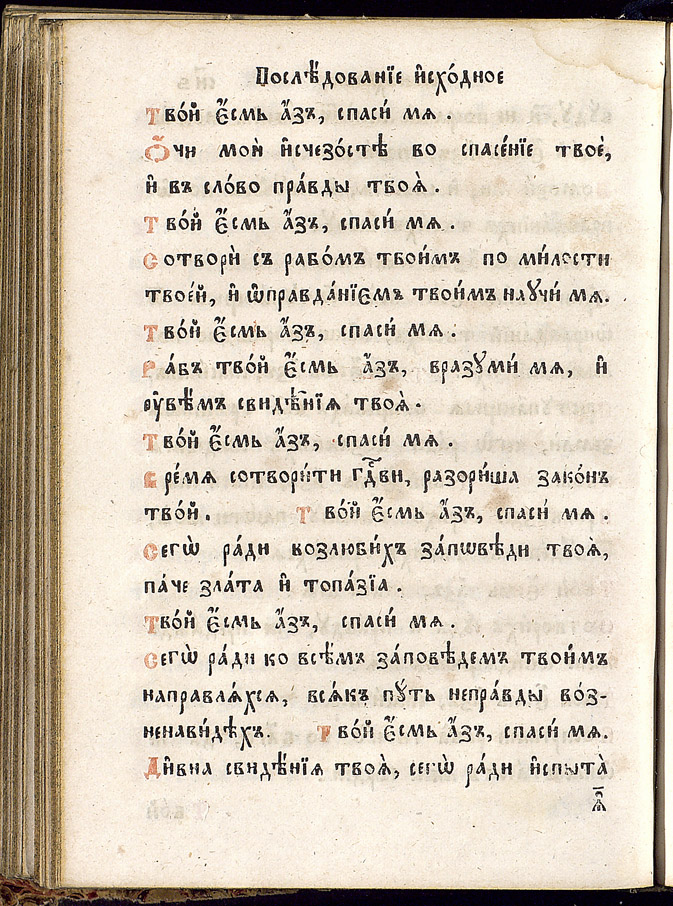 Послѣ́дованїе и҆схо́дное
Тво́й є҆́смь а҆́зъ, спаси́ мѧ
Ѻ҆́чи мои̑ и҆счезо́стѣ во спасе́нїе твоѐ,
и҆ въ сло́во пра́вды твоѧ̀.
Тво́й є҆́смь а҆́зъ, спаси́ мѧ.
Сотворѝ съ рабо́мъ твои́мъ по ми́лости
твое́й, и҆ ѡ҆правда́нїємъ твои́мъ наꙋчи́ мѧ.
Тво́й є҆́смь а҆́зъ, спаси́ мѧ.
Ра́бъ тво́й є҆́смь а҆́зъ, вразꙋми́ мѧ, и҆
ᲂу҆вѣ́мъ свидѣ́нїѧ твоѧ̀.
Тво́й є҆́смь а҆́зъ, спаси́ мѧ.
Вре́мѧ сотвори́ти гдⷭ҇ви, разори́ша зако́нъ
тво́й. Тво́й є҆́смь а҆́зъ, спаси́ мѧ.
Сегѡ̀ ра́ди возлюби́хъ за́пѡвѣди твоѧ̀,
па́че зла́та и҆ топа́зїа.
Тво́й є҆́смь а҆́зъ, спаси́ мѧ.
Сегѡ̀ ра́ди ко всѣ́мъ за́повѣдемъ твои́мъ
направлѧ́хсѧ, всѧ́къ пꙋ́ть непра́вды во́з-
ненави́дѣхъ. Тво́й є҆́смь а҆́зъ, спаси́ мѧ.
Ди́вна свидѣ́нїѧ твоѧ̀, сегѡ̀ ра́ди и҆спыта̀
ѧ҆̀